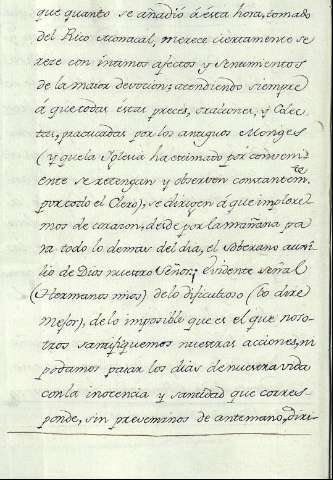 que quanto se añadió á esta hora, tomado
del Rito Monacal, merece ciertamente se
reze con intimos afectos y sentimientos
de la maior devocion; atendiendo siempre
á que todas estas preces, oraciones, y Colec
tas, practicadas por los antiguos Monges
(y que la Iglesia ha estimado por conveni
ente se retengan y observen constantemte
por todo el Clero), se dirigen á que implore
mos de corazon, desde por la mañana pa
ra todo lo demas del dia, el soberano auxi
lio de Dios nuestro Señor; evidente señal
(O hermanos mios) de lo dificultoso (lo diré
mejor), de lo imposible que es el que noso
tros santifiquemos nuestras acciones, ni
podamos pasar los dias de nuestra vida
con la inocencia y santidad que corres
ponde, sin prevenirnos de antemano, diri